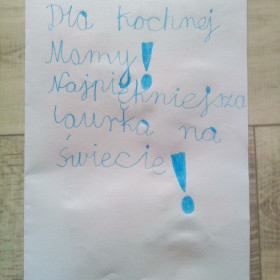 Dla kochnej
Mamy!
Najpiękniejsza
laurka na
świecię!